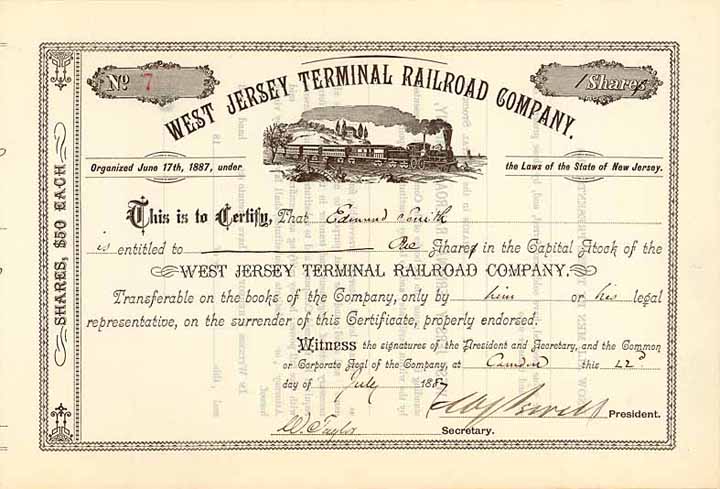 No 7
1 Shares
WEST JERSEY TERMINAL RAILROAD COMPANY.
Organized June 17th, 1887, under
the Laws of the State of New Jersey.
SHARES, $50 EACH
This is to Certify, That Edmund Smith
is entitled to One Shares in the Capital Stock of the
WEST JERSEY TERMINAL RAILROAD COMPANY.
Transferable on the books of the Company, only by him or his legal
representative, on the surrender of this Certificate, properly endorsed.
Witness the signatures of the President and Secretary, and the Common
or Corporate Seal of the Company, at Camden this 22d
day of July 1887
President.
W. Taylor
Secretary.